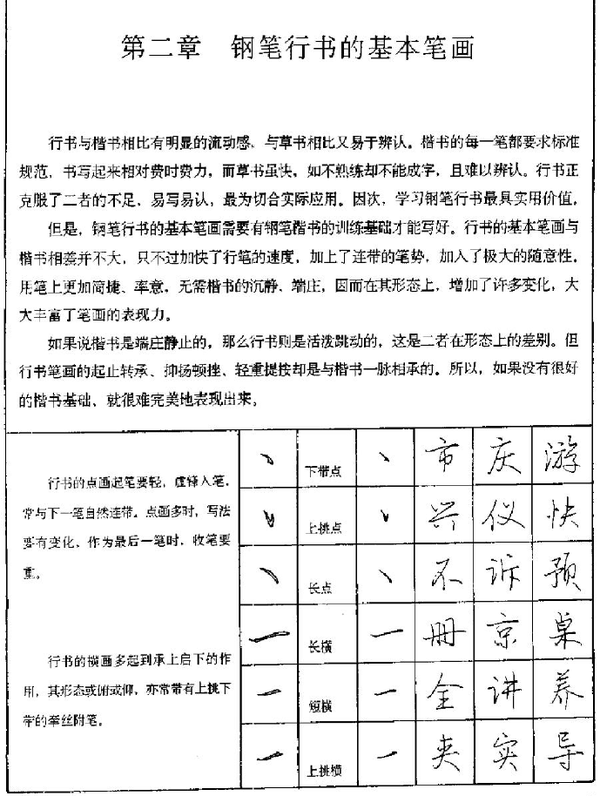 第二章 钢笔行书的基本笔画
行书与楷书相比有明显的流动感、与草书相比又易于辨认。楷书的每一笔都要求标准
规范，书写起来相对费时费力，而草书虽快，如不熟练却不能成字，且难以辨认。行书正
克服了二者的不足、易写易认，最为切合实际应用。因次，学习钢笔行书最具实用价值。
但是，钢笔行书的基本笔画需要有钢笔楷书的训练基础才能写好。行书的基本笔画与
楷书相差并不大，只不过加快了行笔的速度，加上了连带的笔势，加入了极大的随意性。
用笔上更加简捷、率意，无需楷书的沉静、端庄，因而在其形态上，增加了许多变化，大
大丰富了笔画的表现力。
如果说楷书是端庄静止的，那么行书则是活泼跳动的，这是二者在形态上的差别。但
行书笔画的起止转承、抑扬顿挫、轻重提按却是与楷书一脉相承的。所以，如果没有很好
的楷书基础、就很难完美地表现出来。
行书的点画起笔要轻，虚锋入笔，
常与下一笔自然连带。点画多时，写法
要有变化，作为最后一笔时，收笔要
重。
下带点 市 庆 游
上挑点 兴 仪 快
长点 不 诉 预
行书的横画多起到承上启下的作
用，其形态或俯或仰，亦常带有上挑下
带的牵丝附笔。
长横 册 京 桌
短横 全 讲 养
上挑横 夹 实 导